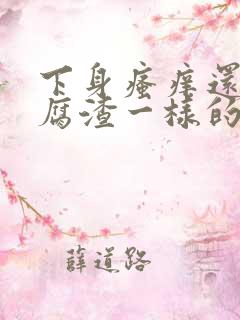 下身瘙痒還
腐渣一樣的
薛道路